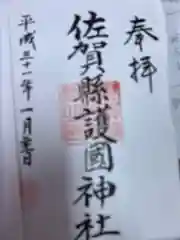 奉拝
佐賀縣護國神社
平成三十一年一月吉日